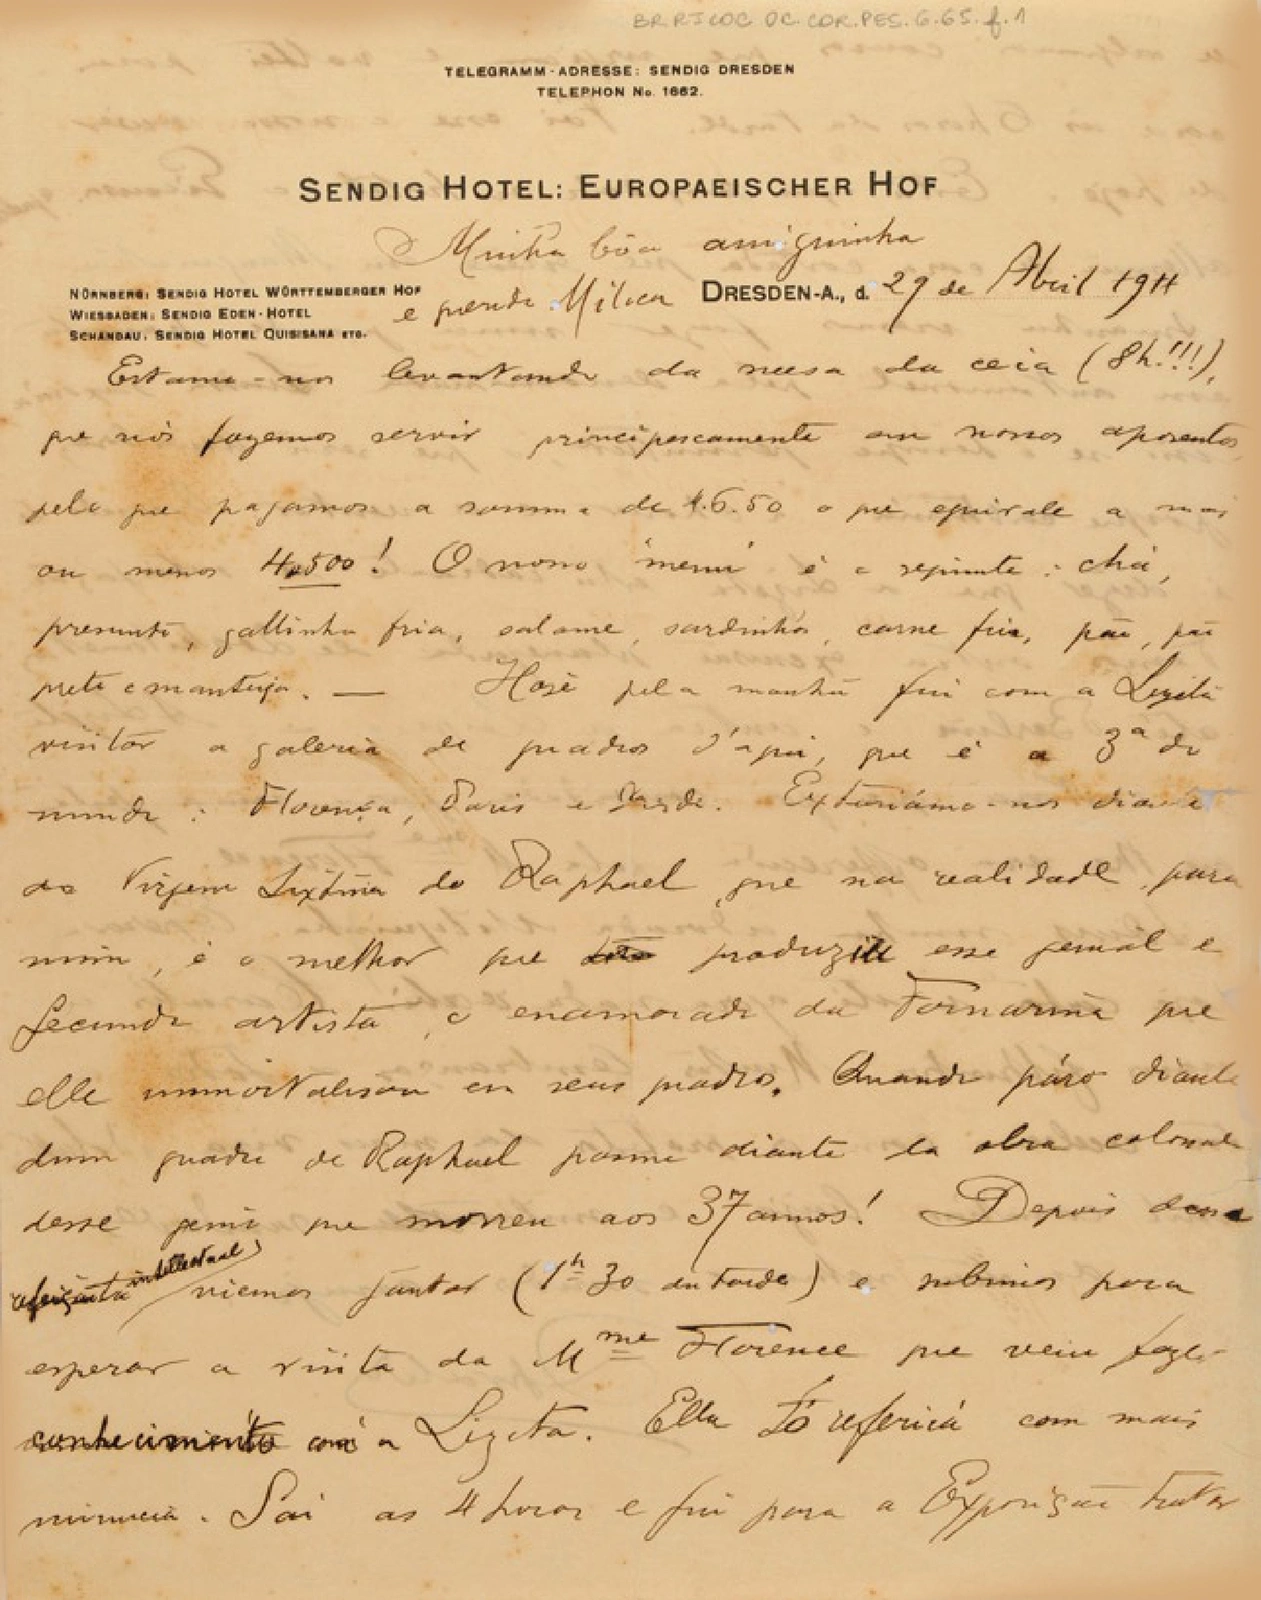 BR.RJCOC OC.COR.PES.6.65.f.1
TELEGRAMM-ADRESSE: SENDIG DRESDEN
TELEPHON No. 1662.
SENDIG HOTEL: EUROPAEISCHER HOF
Minha bôa amiguinha
NÜRNBERG: SENDIG HOTEL WÜRTTEMBERGER HOF
WIESBADEN: SENDIG EDEN-HOTEL
SCHANDAU: SENDIG HOTEL QUISISANA ETC.
e querida Miloca
DRESDEN-A., d. 29 de Abril 1911
Estamo-nos levantando da mesa da ceia (8h.!!!),
que nós fazemos servir principescamente em nossos aposentos
pelo que pagamos a somma de 6.50 o que equivale a mais
ou menos 4,500! O nosso "menu" é o seguinte: chá,
presunto, gallinha fria, salame, sardinhas, carne fria, pão, pão
preto e manteiga. — Hoje pela manhã fui com a Lizeta
visitar a galeria de quadros d'aqui, que é a 3ª do
mundo: Florença, Paris e Dresde. Extasiámo-nos diante
da Virgem Sixtina de Raphael, que na realidade, para
mim, é o melhor que produziu esse genial e
fecundo artista, o enamorado da Fornarina que
elle immortalisou em seus quadros. Quando páro diante
dum quadro de Raphael pasmo diante da obra colossal
desse genio que morreu aos 37 annos! Depois dessa
intellectual viemos jantar (1h 30 da tarde) e subimos para
esperar a visita da Mme Florence que veiu fazer
conhecimento com a Lizeta. Ella t'o referirá com mais
minucia. Sai as 4 horas e fui para a Exposição tratar